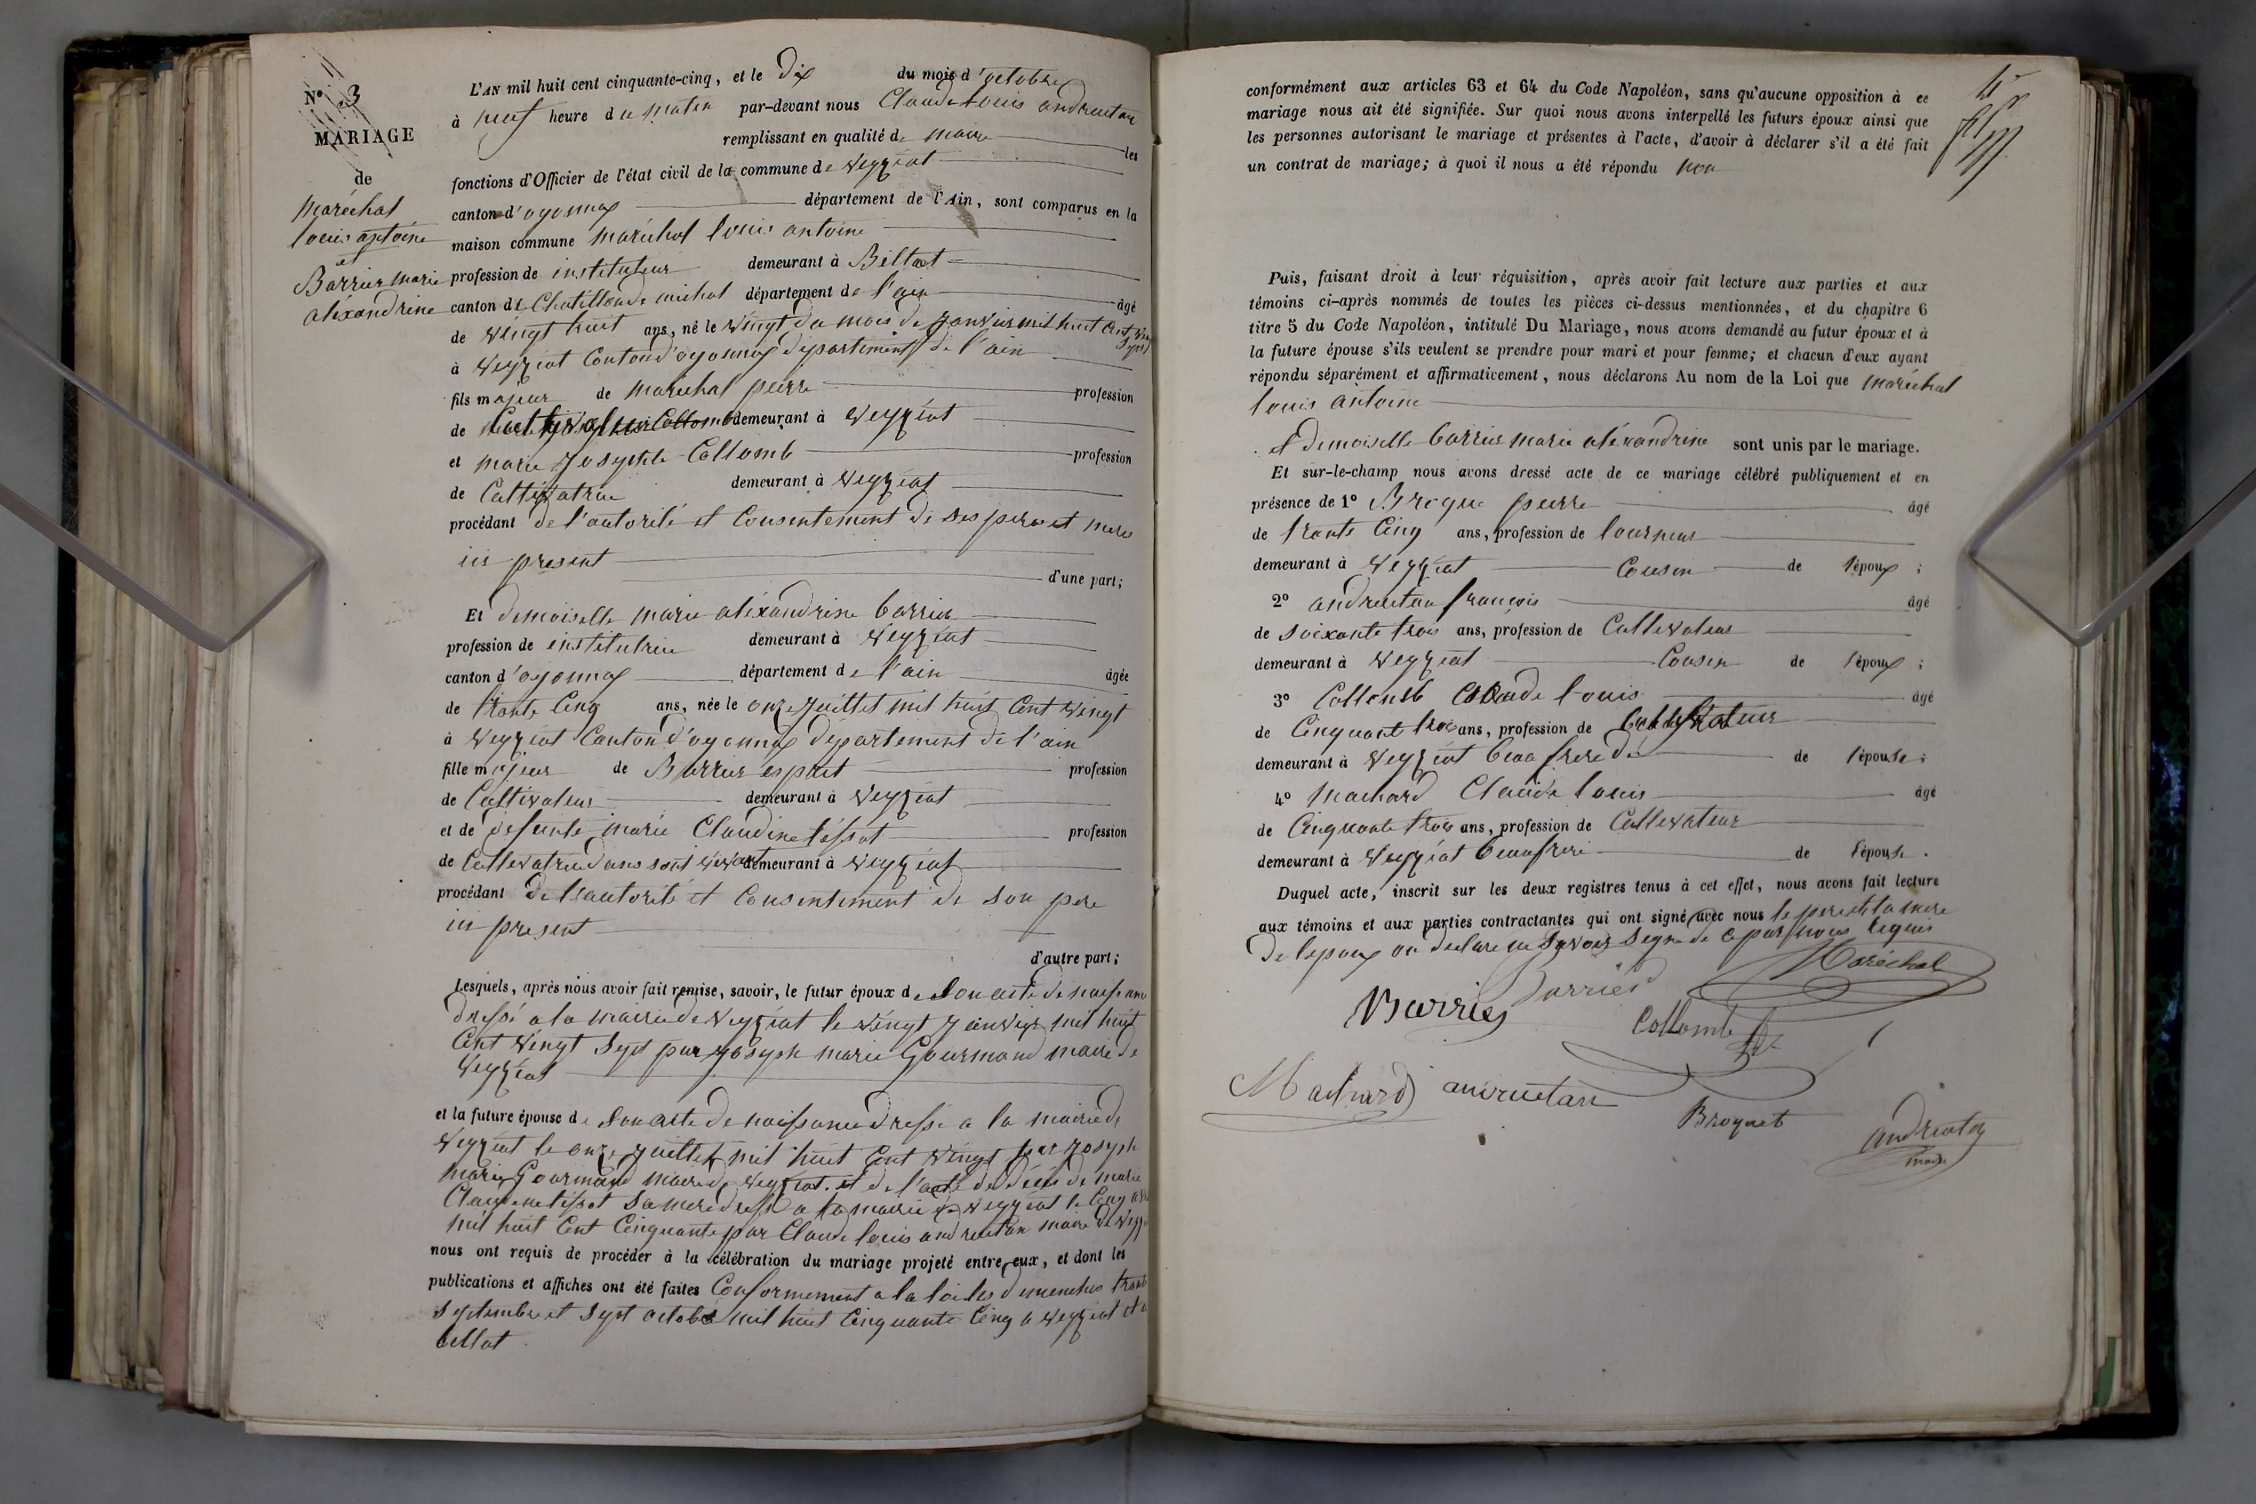 N° 3
MARIAGE
de
Maréchal
louis antoine
et
Barrier marie
aléxandrine
L'AN mil huit cent cinquante-cinq, et le dix du mois d'octobre
à neuf heure du matin par-devant nous Claude Louis andreutan
remplissant en qualité de maire les
fonctions d'Officier de l'état civil de la commune de Veyziat
canton d'oyonnax département de l'Ain, sont comparus en la
maison commune maréchal louis antoine
profession de instituteur demeurant à Billiat
canton de Chatillon de michal département de l'ain âgé
de vingt huit ans, né le vingt du mois de janvier mil huit Cent vingt sept
à Veyziat Canton d'oyonnax département de l'ain
fils majeur de maréchal pierre profession
de Cultivateur demeurant à Veyziat
et marie Josephte Collomb profession
de Cultivatrice demeurant à Veyziat
procédant de l'autorité et Consentement de ses pere et mere
ici present
d'une part;
Et demoiselle marie aléxandrine barrier
profession de institutrice demeurant à Veyziat
canton d'oyonnax département de l'ain âgée
de trente Cinq ans, née le onze Juillet mil huit Cent vingt
à Veyziat Canton d'oyonnax département de l'ain
fille majeur de Barrier esprit profession
de Cultivateur demeurant à Veyziat
et de defunte marie Claudine tissot profession
de Cultivatrice dans son vivant demeurant à Veyziat
procédant de l'autorité et Consentement de son pere
ici present
d'autre part;
Lesquels, après nous avoir fait remise, savoir, le futur époux de Son acte de naissance
dressé a la mairie de Veyziat le vingt Janvier mil huit
Cent vingt Sept par Joseph marie Gourmand maire de
Veyziat
et la future épouse de Son acte de naissance dressé a la mairie de
Veyziat le onze Juillet mil huit Cent vingt par Joseph
marie Gourmand maire de Veyziat et de l'acte de déces de marie
Claudine tissot Sa mere dressé a la mairie de Veyziat le Cinq
mil huit Cent Cinquante par Claude louis andreutan maire de
nous ont requis de procéder à la célébration du mariage projeté entre eux, et dont les
publications et affiches ont été faites Conformement a la loi les dimenches trente
Septembre et Sept octobre mil huit Cinquante Cinq a Veyziat et a
billiat
conformément aux articles 63 et 64 du Code Napoléon, sans qu'aucune opposition à ce
mariage nous ait été signifiée. Sur quoi nous avons interpellé les futurs époux ainsi que
les personnes autorisant le mariage et présentes à l'acte, d'avoir à déclarer s'il a été fait
un contrat de mariage; à quoi il nous a été répondu non
Puis, faisant droit à leur réquisition, après avoir fait lecture aux parties et aux
témoins ci-après nommés de toutes les pièces ci-dessus mentionnées, et du chapitre 6
titre 5 du Code Napoléon, intitulé Du Mariage, nous avons demandé au futur époux et à
la future épouse s'ils veulent se prendre pour mari et pour femme; et chacun d'eux ayant
répondu séparément et affirmativement, nous déclarons Au nom de la Loi que Maréchal
louis antoine
et demoiselle barrier marie aléxandrine sont unis par le mariage.
Et sur-le-champ nous avons dressé acte de ce mariage célébré publiquement et en
présence de 1° Broque pierre âgé
de trente Cinq ans, profession de tourneur
demeurant à Veyziat Cousin de l'époux ;
2° andreutan françois âgé
de soixante trois ans, profession de Cultivateur
demeurant à Veyziat Cousin de l'époux ;
3° Collomb Claude louis âgé
de Cinquante trois ans, profession de Cultivateur
demeurant à Veyziat beau frere de de l'épouse ;
4° Machard Claude louis âgé
de Cinquante trois ans, profession de Cultivateur
demeurant à Veyziat beaufrere de l'épouse .
Duquel acte, inscrit sur les deux registres tenus à cet effet, nous avons fait lecture
aux témoins et aux parties contractantes qui ont signé avec nous le pere et la mere
de l'epoux on declare ne Savoir Signé de ce par nous requis
Maréchal
Barrier
Barrier
Collomb
Machard
andreutan
Broquet
andreutan
maire